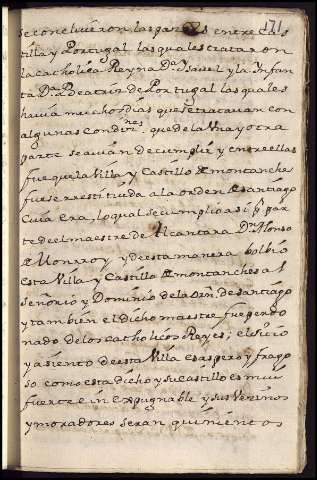 171
se concluieron las pazes entre Cas
tilla y Portugal las quales trataron
la catholica Reyna Dª Ysavel y la Ynfan
ta Dª Beatriz de Portugal las quales
havia muchos dias que se tratavan con
algunas condiꝫnes, que de la Una y otra
parte se avian de cumplir y entre ellas
fue que la Villa y Castillo de montanches
fuese rrestituida a la orden de santiago
Cuia era, lo qual se cumplio asi pr par
te de el maestre de Alcantara Dn Alonso
de Monrroy y de esta manera bolbio
esta Villa y Castillo de montanches al
señorio y Dominio de la orn. de santiago
y tambien el dicho maestre fue perdo
nado de los catholicos Reyes; el sitio
y asiento de esta Villa es aspero y frago
so como esta dicho y su castillo es mui
fuerte e inexpugnable y sus Vezinos
y moradores seran quinientos